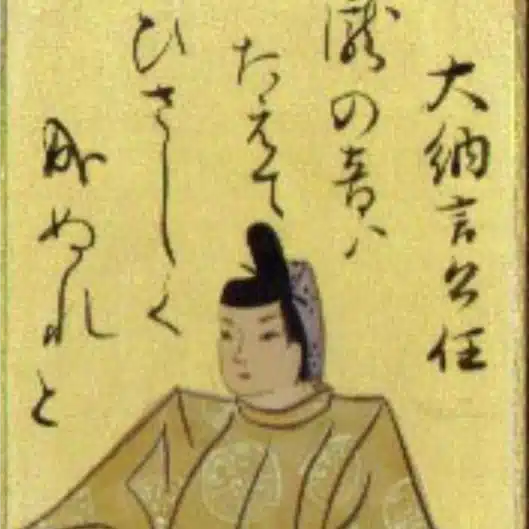 大納言公任
瀧の音ハ
たえて
ひさしく
成ぬれと